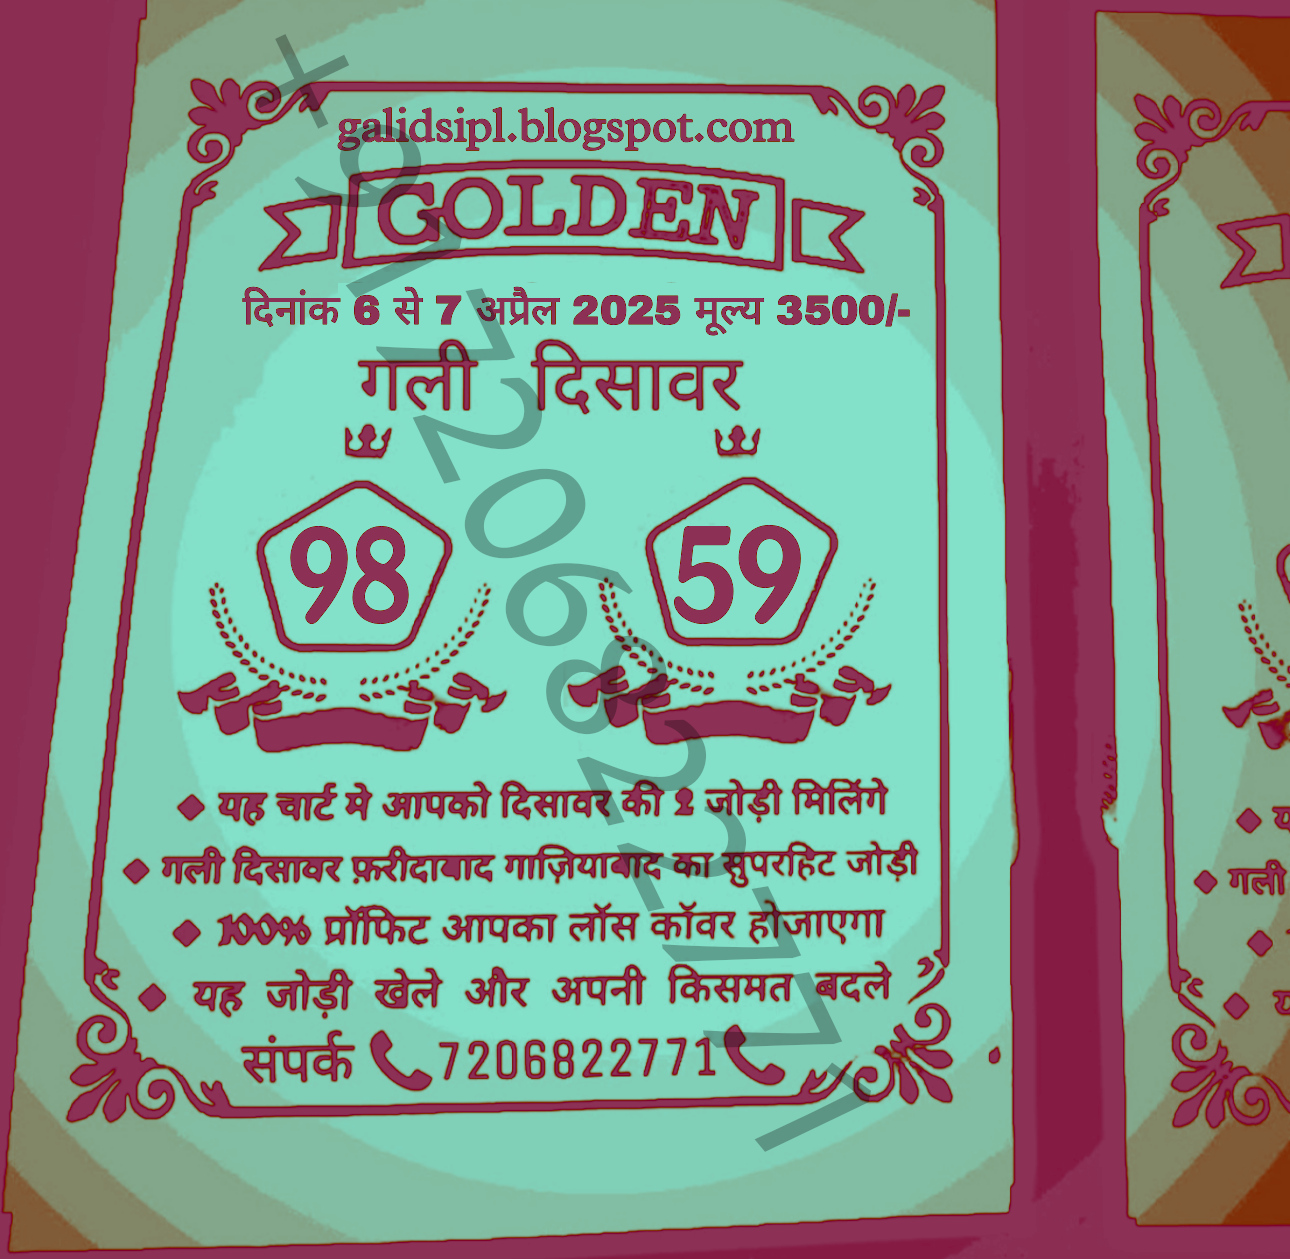 galidsipl.blogspot.com
GOLDEN
दिनांक 6 से 7 अप्रैल 2025 मूल्य 3500/-
गली दिसावर
98 59
◆ यह चार्ट मे आपको दिसावर की 2 जोड़ी मिलिंगे
◆ गली दिसावर फ़रीदाबाद गाज़ियाबाद का सुपरहिट जोड़ी
◆ 100% प्रॉफिट आपका लॉस कॉवर होजाएगा
◆ यह जोड़ी खेले और अपनी किसमत बदले
संपर्क 7206822771
+917206822771
◆ गली